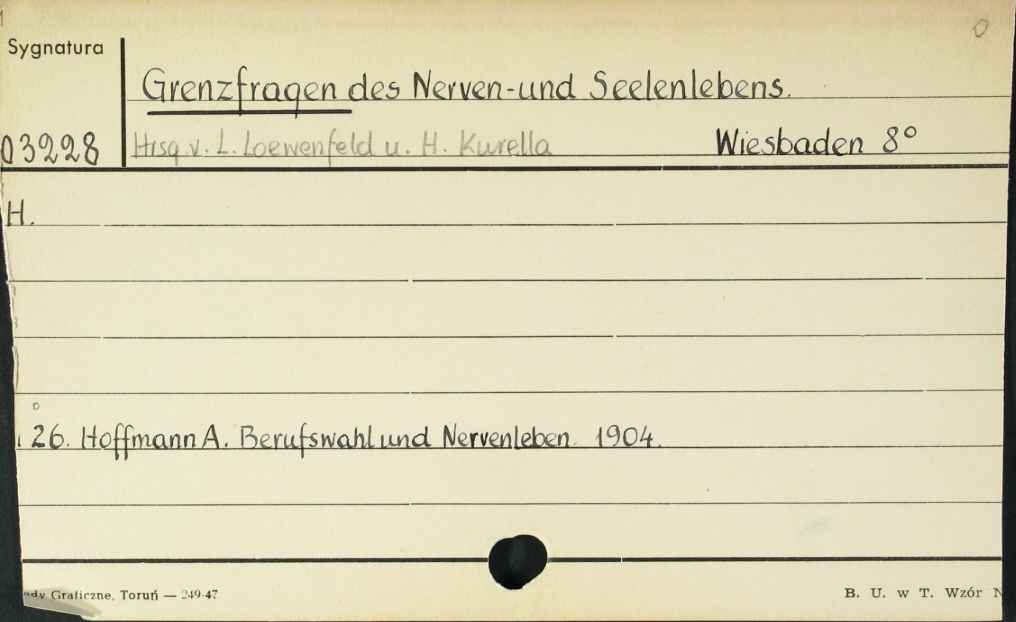 Sygnatura
Grenzfragen des Nerven-und Seelenlebens.
03228 Hrsg v. L. Loewenfeld u. H. Kurella Wiesbaden 8°
H.
26. Hoffmann A. Berufswahl und Nervenleben. 1904.
Graficzne, Toruń — 249-47
B. U. w T. Wzór N